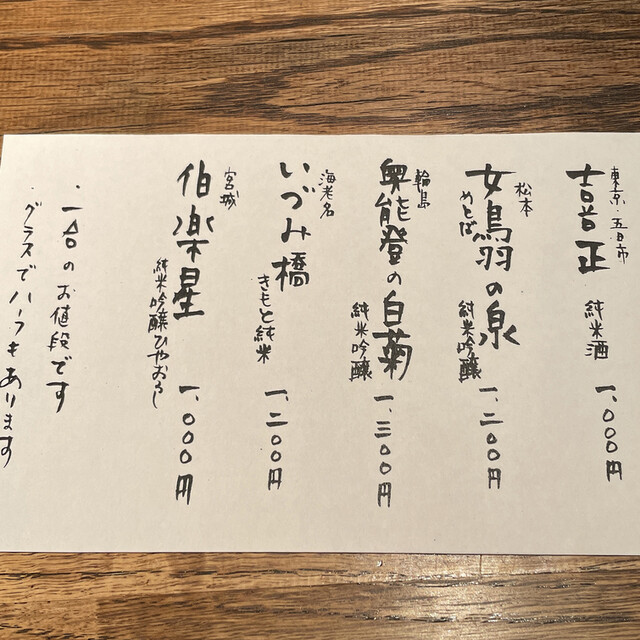 東京・五日市
喜正 純米酒 一、〇〇〇円
松本
女鳥羽の泉 純米吟醸 一、二〇〇円
めとば
輪島
奥能登の白菊 純米吟醸 一、三〇〇円
海老名
いづみ橋 きもと純米 一、二〇〇円
宮城
伯楽星 純米吟醸ひやおろし 一、〇〇〇円
・一合のお値段です
・グラスでハーフもあります